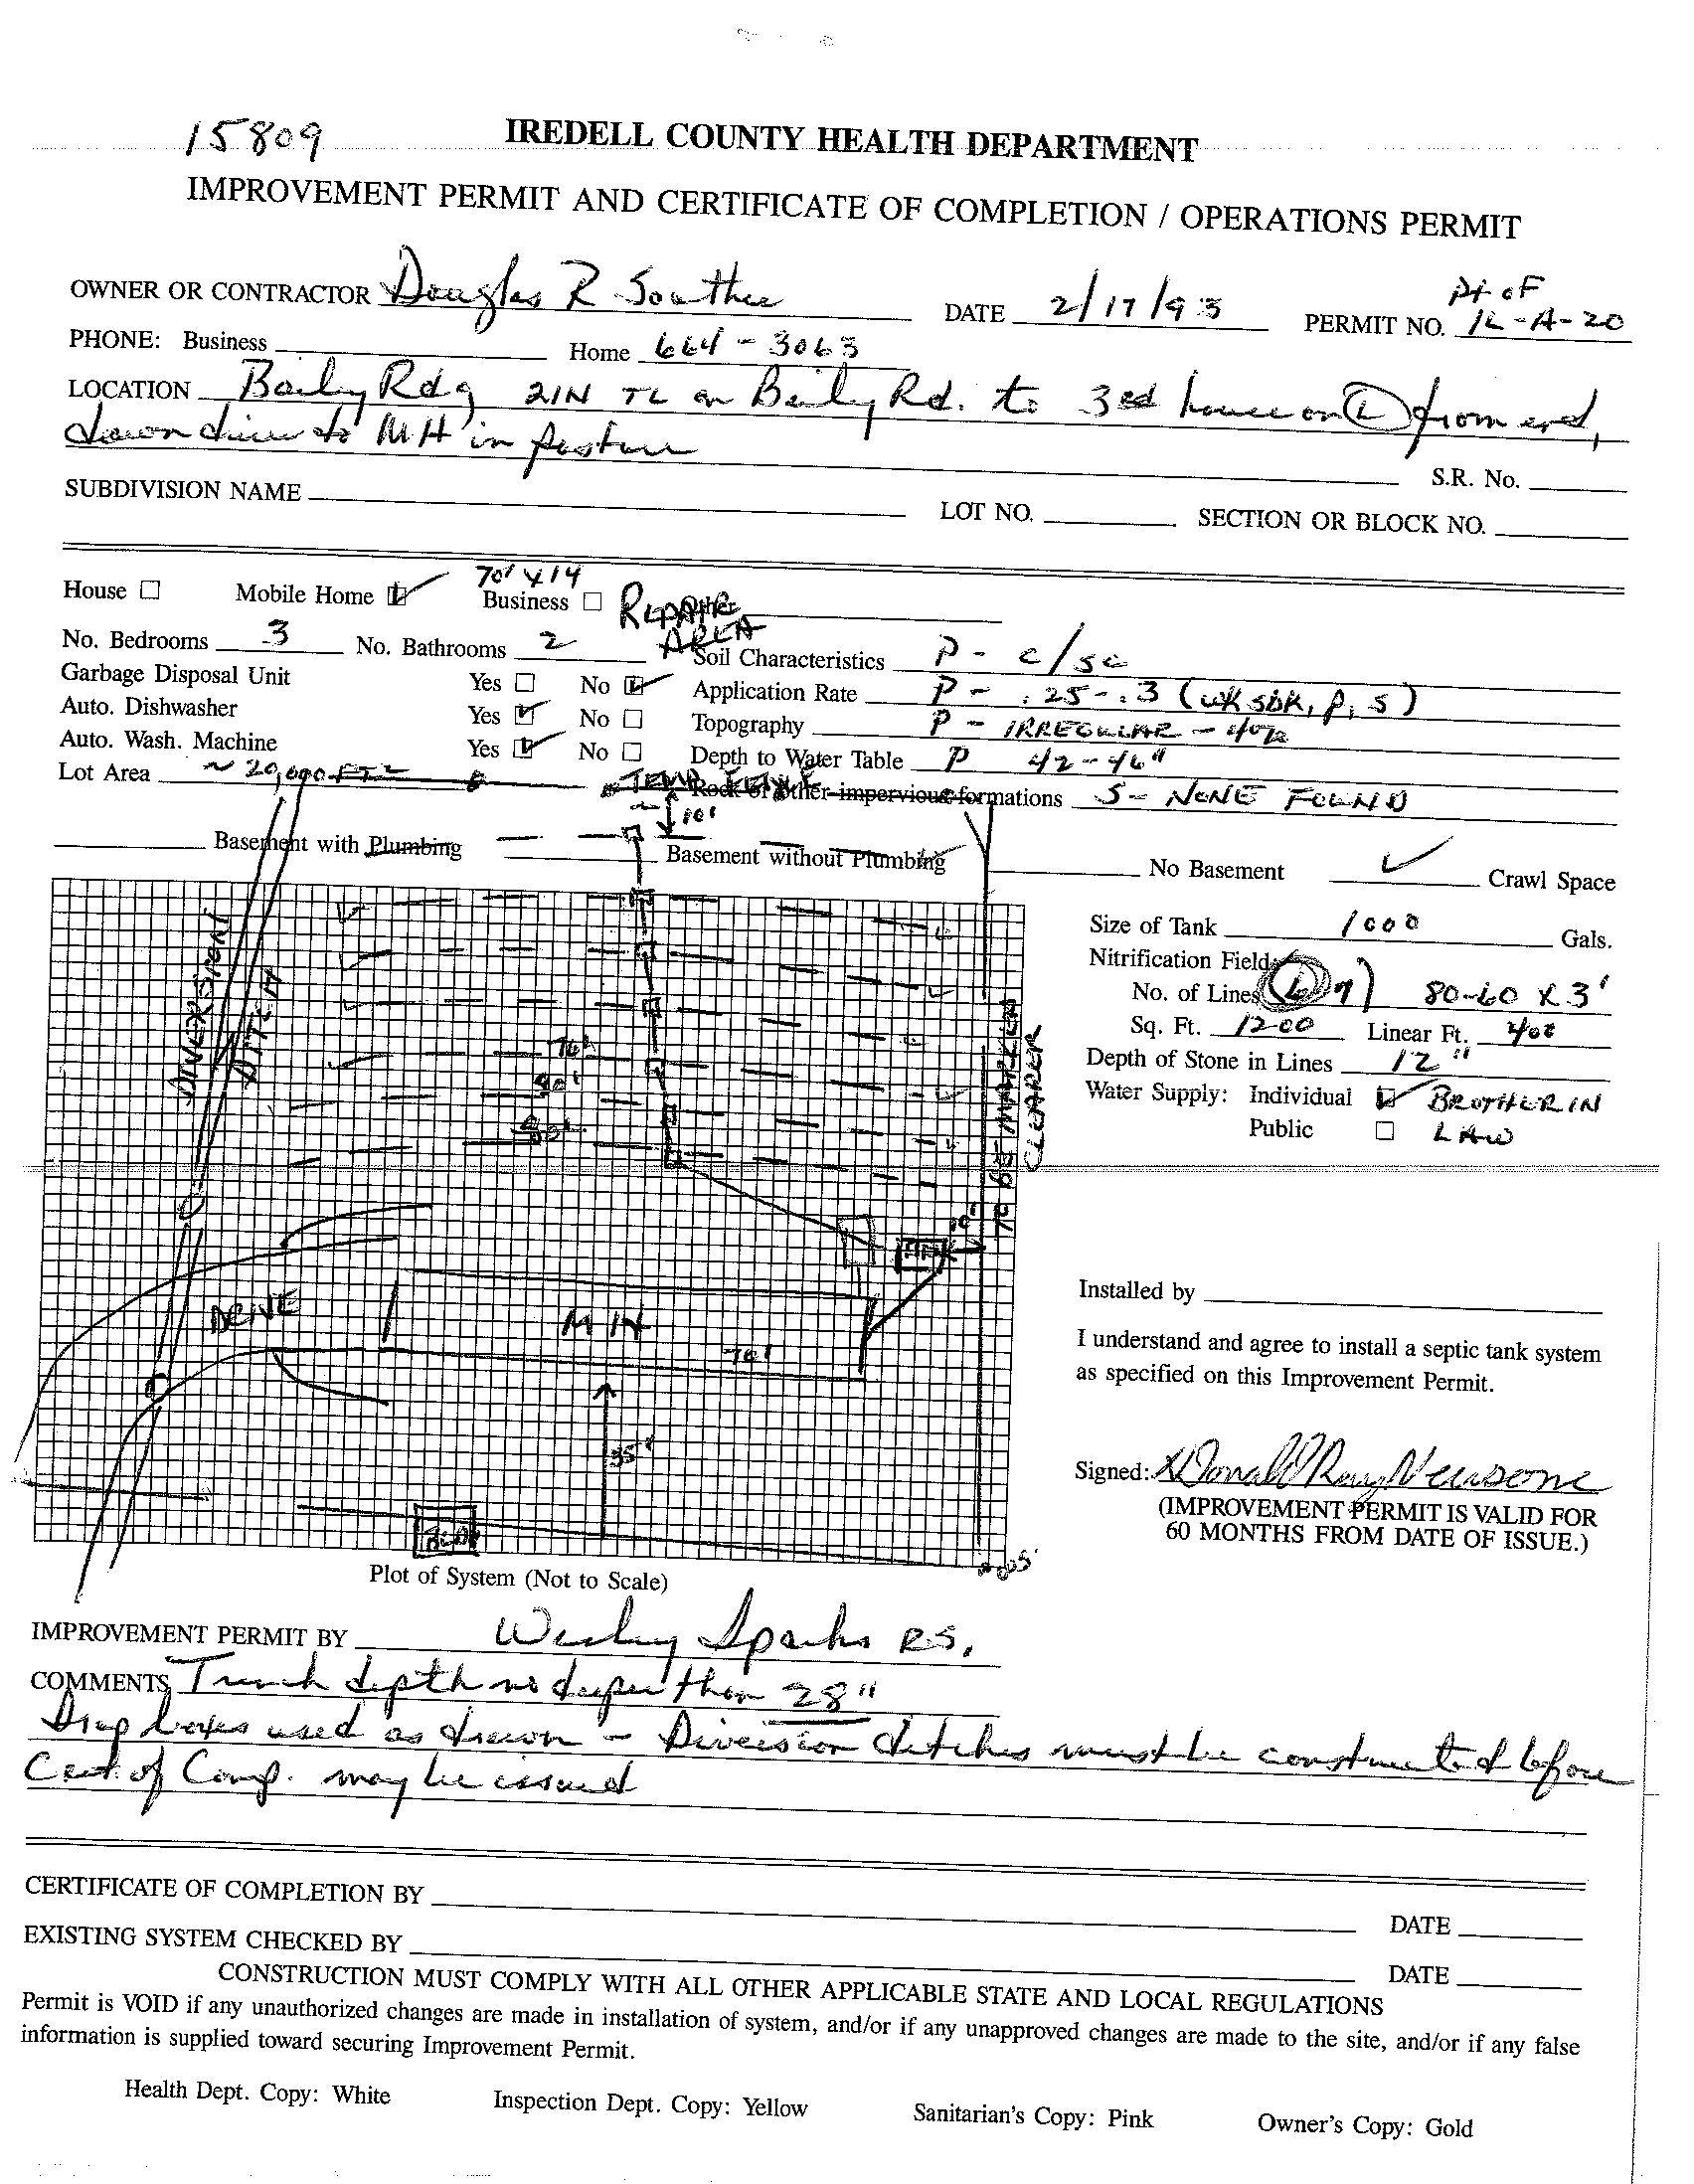 15809 IREDELL COUNTY HEALTH DEPARTMENT
IMPROVEMENT PERMIT AND CERTIFICATE OF COMPLETION / OPERATIONS PERMIT
OWNER OR CONTRACTOR Douglas R Souther DATE 2/17/93 PERMIT NO. Pt of 1L-A-20
PHONE: Business Home 664-3063
LOCATION Baily Rdg 21N TL on Baily Rd. to 3rd house on L from end,
down drive to MH in pasture
S.R. No.
SUBDIVISION NAME LOT NO. SECTION OR BLOCK NO.
70' x 14
House Mobile Home Business Other
REPAIR AREA
No. Bedrooms 3 No. Bathrooms 2 Soil Characteristics P - c/sc
Garbage Disposal Unit Yes No Application Rate P - .25-.3 (wk sbk, p, s)
Auto. Dishwasher Yes No Topography P - IRREGULAR -
Auto. Wash. Machine Yes No Depth to Water Table P 42-46"
Lot Area ~ 20,000 FT2 Rock or other impervious formations S - NONE FOUND
TEMP
10'
Basement with Plumbing Basement without Plumbing No Basement Crawl Space
Size of Tank 1000 Gals.
Nitrification Field:
No. of Lines (7) 80-60 x 3'
Sq. Ft. 1200 Linear Ft. 400
Depth of Stone in Lines 12"
Water Supply: Individual BROTHER IN
Public LAW
DIVERSION DITCH
70'
80'
TO BE MARKED CLEARER
10'
TANK
DRIVE
MH
70'
35'
Installed by
I understand and agree to install a septic tank system
as specified on this Improvement Permit.
Signed: x Donald Ray Newsome
(IMPROVEMENT PERMIT IS VALID FOR
60 MONTHS FROM DATE OF ISSUE.)
Plot of System (Not to Scale)
IMPROVEMENT PERMIT BY Wesley Sparks RS.
COMMENTS Trench depth no deeper than 28"
Drop boxes used as drawn - Diversion ditches must be constructed before
Cert. of Comp. may be issued
CERTIFICATE OF COMPLETION BY DATE
EXISTING SYSTEM CHECKED BY DATE
CONSTRUCTION MUST COMPLY WITH ALL OTHER APPLICABLE STATE AND LOCAL REGULATIONS
Permit is VOID if any unauthorized changes are made in installation of system, and/or if any unapproved changes are made to the site, and/or if any false
information is supplied toward securing Improvement Permit.
Health Dept. Copy: White Inspection Dept. Copy: Yellow Sanitarian's Copy: Pink Owner's Copy: Gold